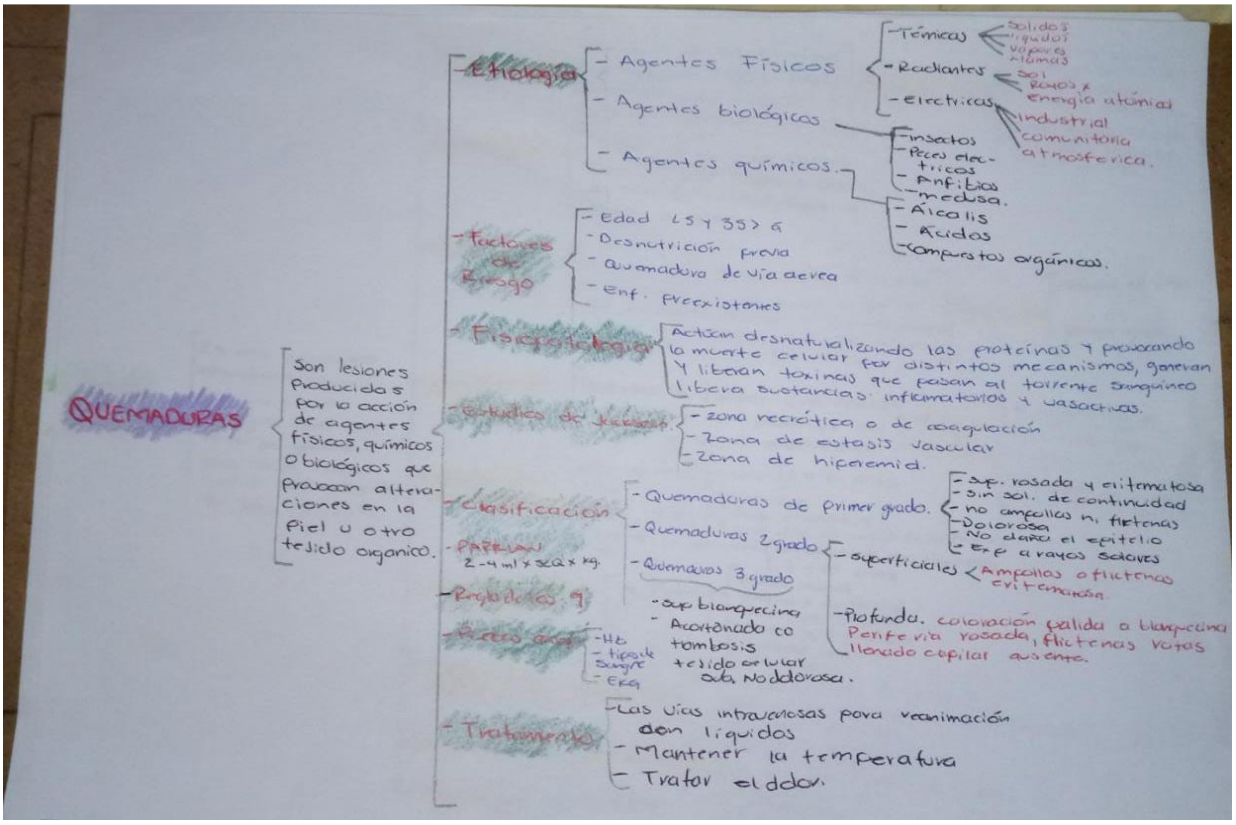 QUEMADURAS
Son lesiones
producidas
por la acción
de agentes
físicos, químicos
o biológicos que
provocan altera-
ciones en la
piel u otro
tejido organico.
- Etiología
- Agentes Físicos
- Térmicas
solidos
liquidos
vapores
llamas
- Radiantes
sol
Rayos x
energía atómica
- electricas
industrial
comunitaria
atmosferica.
- Agentes biológicos
- insectos
- Peces elec-
tricos
- Anfibios
- medusa.
- Agentes químicos.
- Álcalis
- Ácidos
- Compuestos orgánicos.
- Factores
de
Riesgo
- Edad <5 y 35> a
- Desnutrición previa
- Quemadura de vía aerea
- Enf. preexistentes
- Fisiopatología
Actúan desnaturalizando las proteínas y provocando
la muerte celular por distintos mecanismos, generan
y liberan toxinas que pasan al torrente sanguíneo
libera sustancias inflamatorios y vasactivas.
- Estudios de Jackson
- zona necrótica o de coagulación
- Zona de estasis vascular
- Zona de hiperemid.
- Clasificación
- Quemaduras de primer grado.
- sup. rosada y eritematosa
- sin sol. de continuidad
- no ampollas ni flictenas
- Dolorosa
- No daña el epitelio
- Exp a rayos solares
- Quemaduras 2 grado
- superficiales
Ampollas o flictenas
eritematosa
- Profunda. coloración palida o blanquecina
Periferia rosada, flictenas rotas
llenado capilar ausente.
- Quemauras 3 grado
- sup blanquecina
- Acartonada co
tombosis
tejido celular
sub. No dolorosa.
- PARKLAN
2-4 ml x SCQ x kg.
- Regla de los 9
- HB
- tipo de
sangre
- EKG
- Tratamento
- Las vias intravenosas para reanimación
con liquidos
- Mantener la temperatura
- Tratar el dolor.